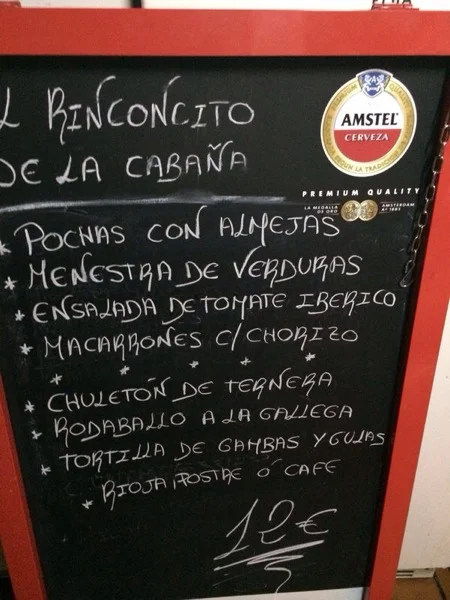 L RINCONCITO
DE LA CABAÑA
AMSTEL
CERVEZA
PREMIUM QUALITY
LA MEDALLA DE ORO
AMSTERDAM Aº 1883
* POCHAS CON ALMEJAS
* MENESTRA DE VERDURAS
* ENSALADA DE TOMATE IBERICO
* MACARRONES C/CHORIZO
* * * * *
* CHULETÓN DE TERNERA
* RODABALLO A LA GALLEGA
* TORTILLA DE GAMBAS Y GULAS
* RIOJA POSTRE Ó CAFE
12€